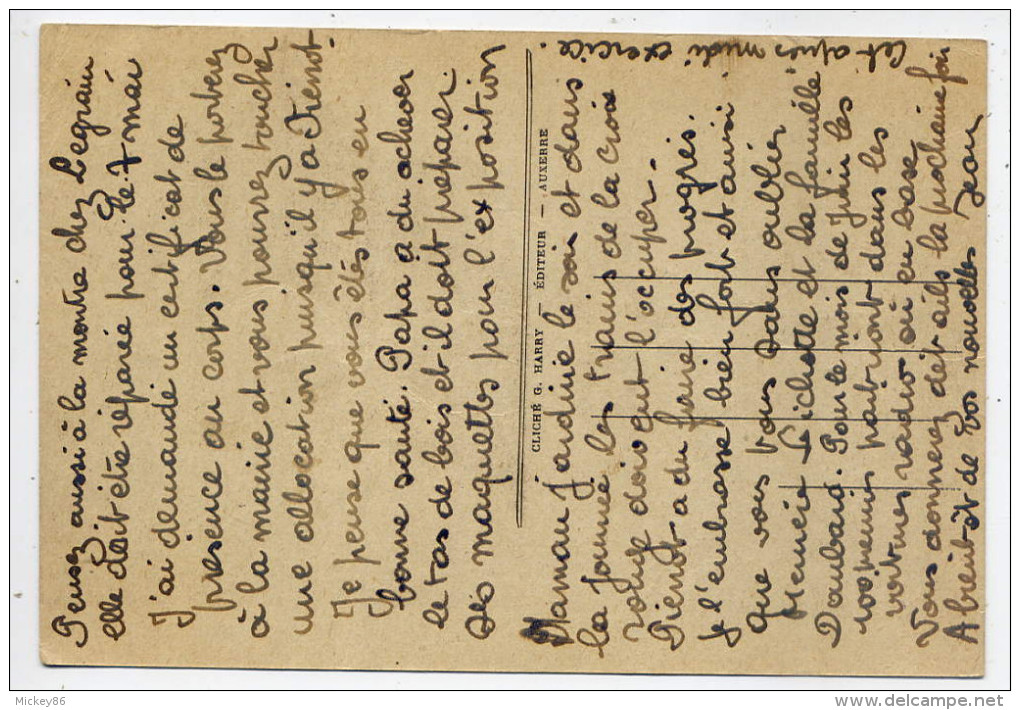 Pensez aussi à la montre chez Legrain
elle doit être réparée pour le 7 mai
J'ai demandé un certificat de
présence au corps. Vous le porterez
à la mairie et vous pourrez toucher
une allocation puisqu'il y a Pierrot.
Je pense que vous êtes tous en
bonne santé. Papa a du achever
le tas de bois et il doit préparer
des maquettes pour l'exposition
CLICHÉ G. HARRY — ÉDITEUR — AUXERRE
Maman jardine le soir et dans
la journée les trains de la croix
rouge doivent l'occuper.
Pierrot a du faire des progrès.
je l'embrasse bien fort et ainsi
que vous tous sans oublier
Mémère Lichotte et la famille
Daubard. Pour le mois de Juin les
premiers partiront dans les
voitures radio ou en base
Vous donnerez détails la prochaine fois
A bientôt de vos nouvelles Jean
Cet après midi exercice.
Mickey86
www.delcampe.net